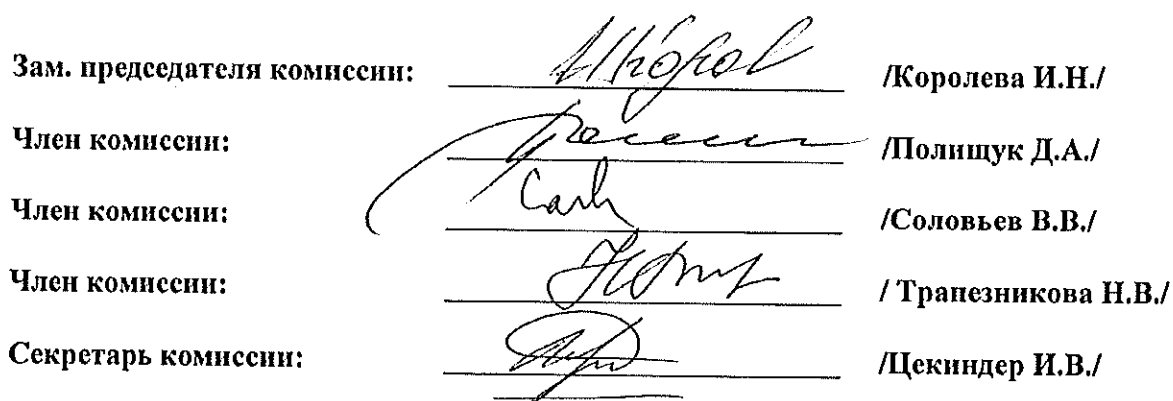 Зам. председателя комиссии: /Королева И.Н./
Член комиссии: /Полищук Д.А./
Член комиссии: /Соловьев В.В./
Член комиссии: / Трапезникова Н.В./
Секретарь комиссии: /Цекиндер И.В./